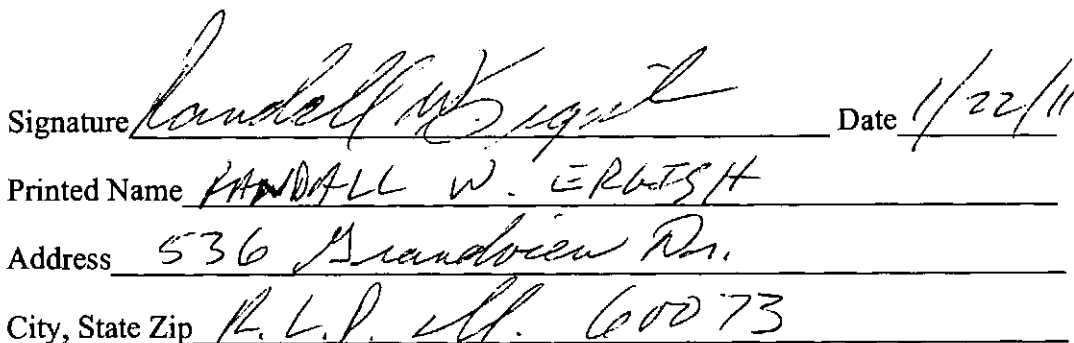 Signature Randall W Date 1/22/11
Printed Name RANDALL W.
Address 536 Grandview Dr.
City, State Zip R.L.P. Ill. 60073